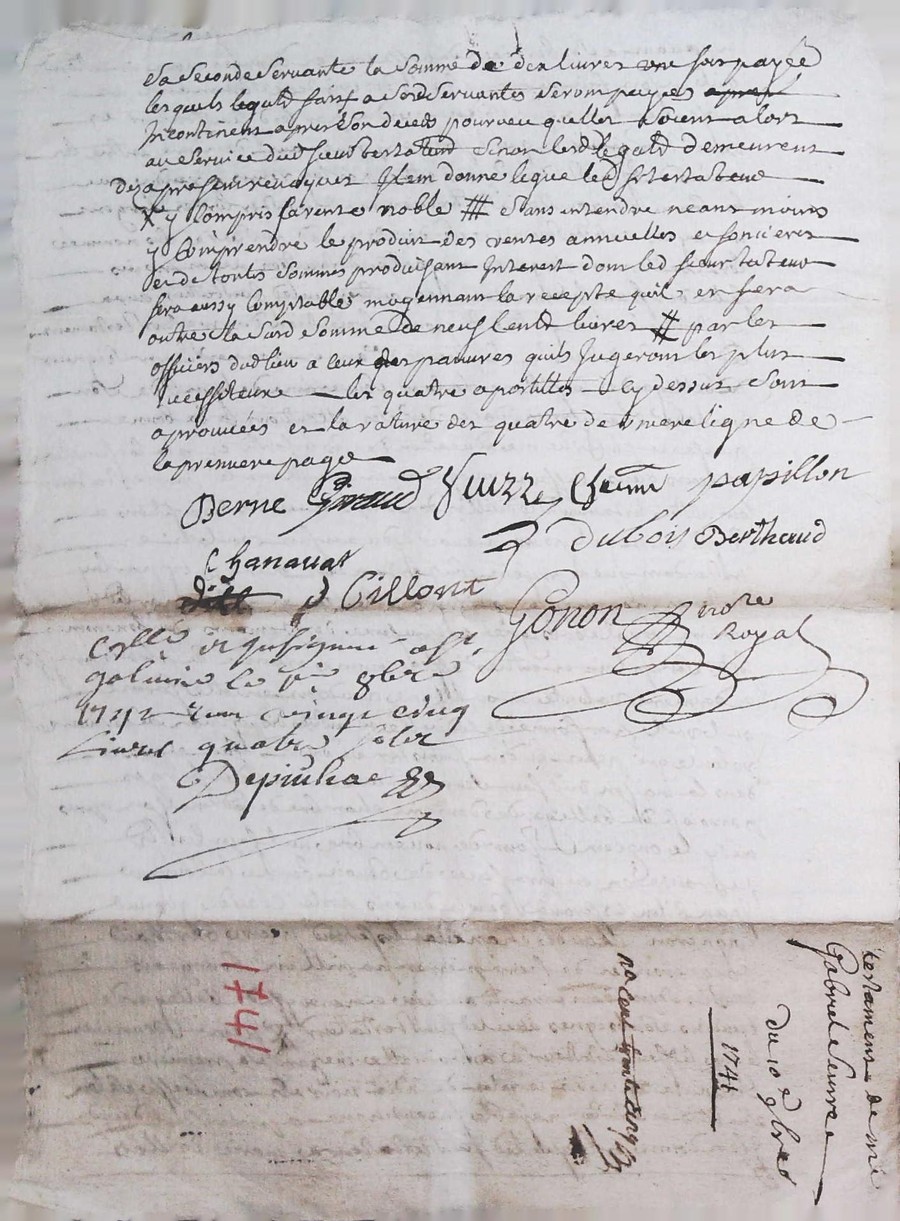 Sa seconde servante la somme de dix livres une fois payée
lesquels legatz faitz a sesd servantes seront payés
Incontinent apres son deceds pourveu quelles soient alors
au service dud sieur testateur sinon lesd legatz demeurent
dez a present revoquez Item donne legue led sr testateur
X y compris sa rente noble # sans entendre neantmoins
y comprendre le produit des rentes annuelles et foncieres
et de toutes sommes produisant Interest dont led sieur testateur
sera aussy comptable moyennant la recepte quil en fera
outre la susd somme de neuf cent livres # par les
officiers dud lieu a ceux des pauvres quils Jugeront les plus
necessiteux les quatre apostilles cy dessus sont
aprouvées et la rature des quatre derniere ligne de
la premiere page
Berne Giraud papillon
dubois Berthaud
Chanavat
Gillont
Gonon nore
Royal
Collé et Insignué a St
galmier le 9bre
1742 Reçu vingt cinq
Livres quatre sols
testament de mr
Gabriel
du 10e 9bre
1741
no cent trente cinq
1741